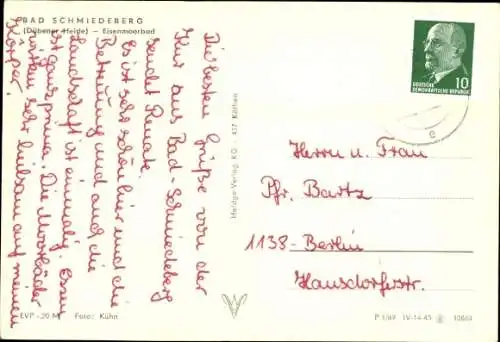 BAD SCHMIEDEBERG
(Dübener Heide) — Eisenmoorbad
Die besten Grüße von der
Kur aus Bad-Schmiedeberg
sendet Renate.
Es ist sehr schön hier und die
Betreuung und auch die
Landschaft ist einmalig. Essen
ist ganz prima. Die Moorbäder
wirken sehr heilsam auf meinen
Körper.
EVP -,20 M Foto: Kühn
Heldge-Verlag, KG 437 Köthen
10
DEUTSCHE
DEMOKRATISCHE REPUBLIK
Herrn u. Frau
Pfr. Bartz
1138-Berlin
Hausdorferstr.
P 1/69 IV-14-45 10860